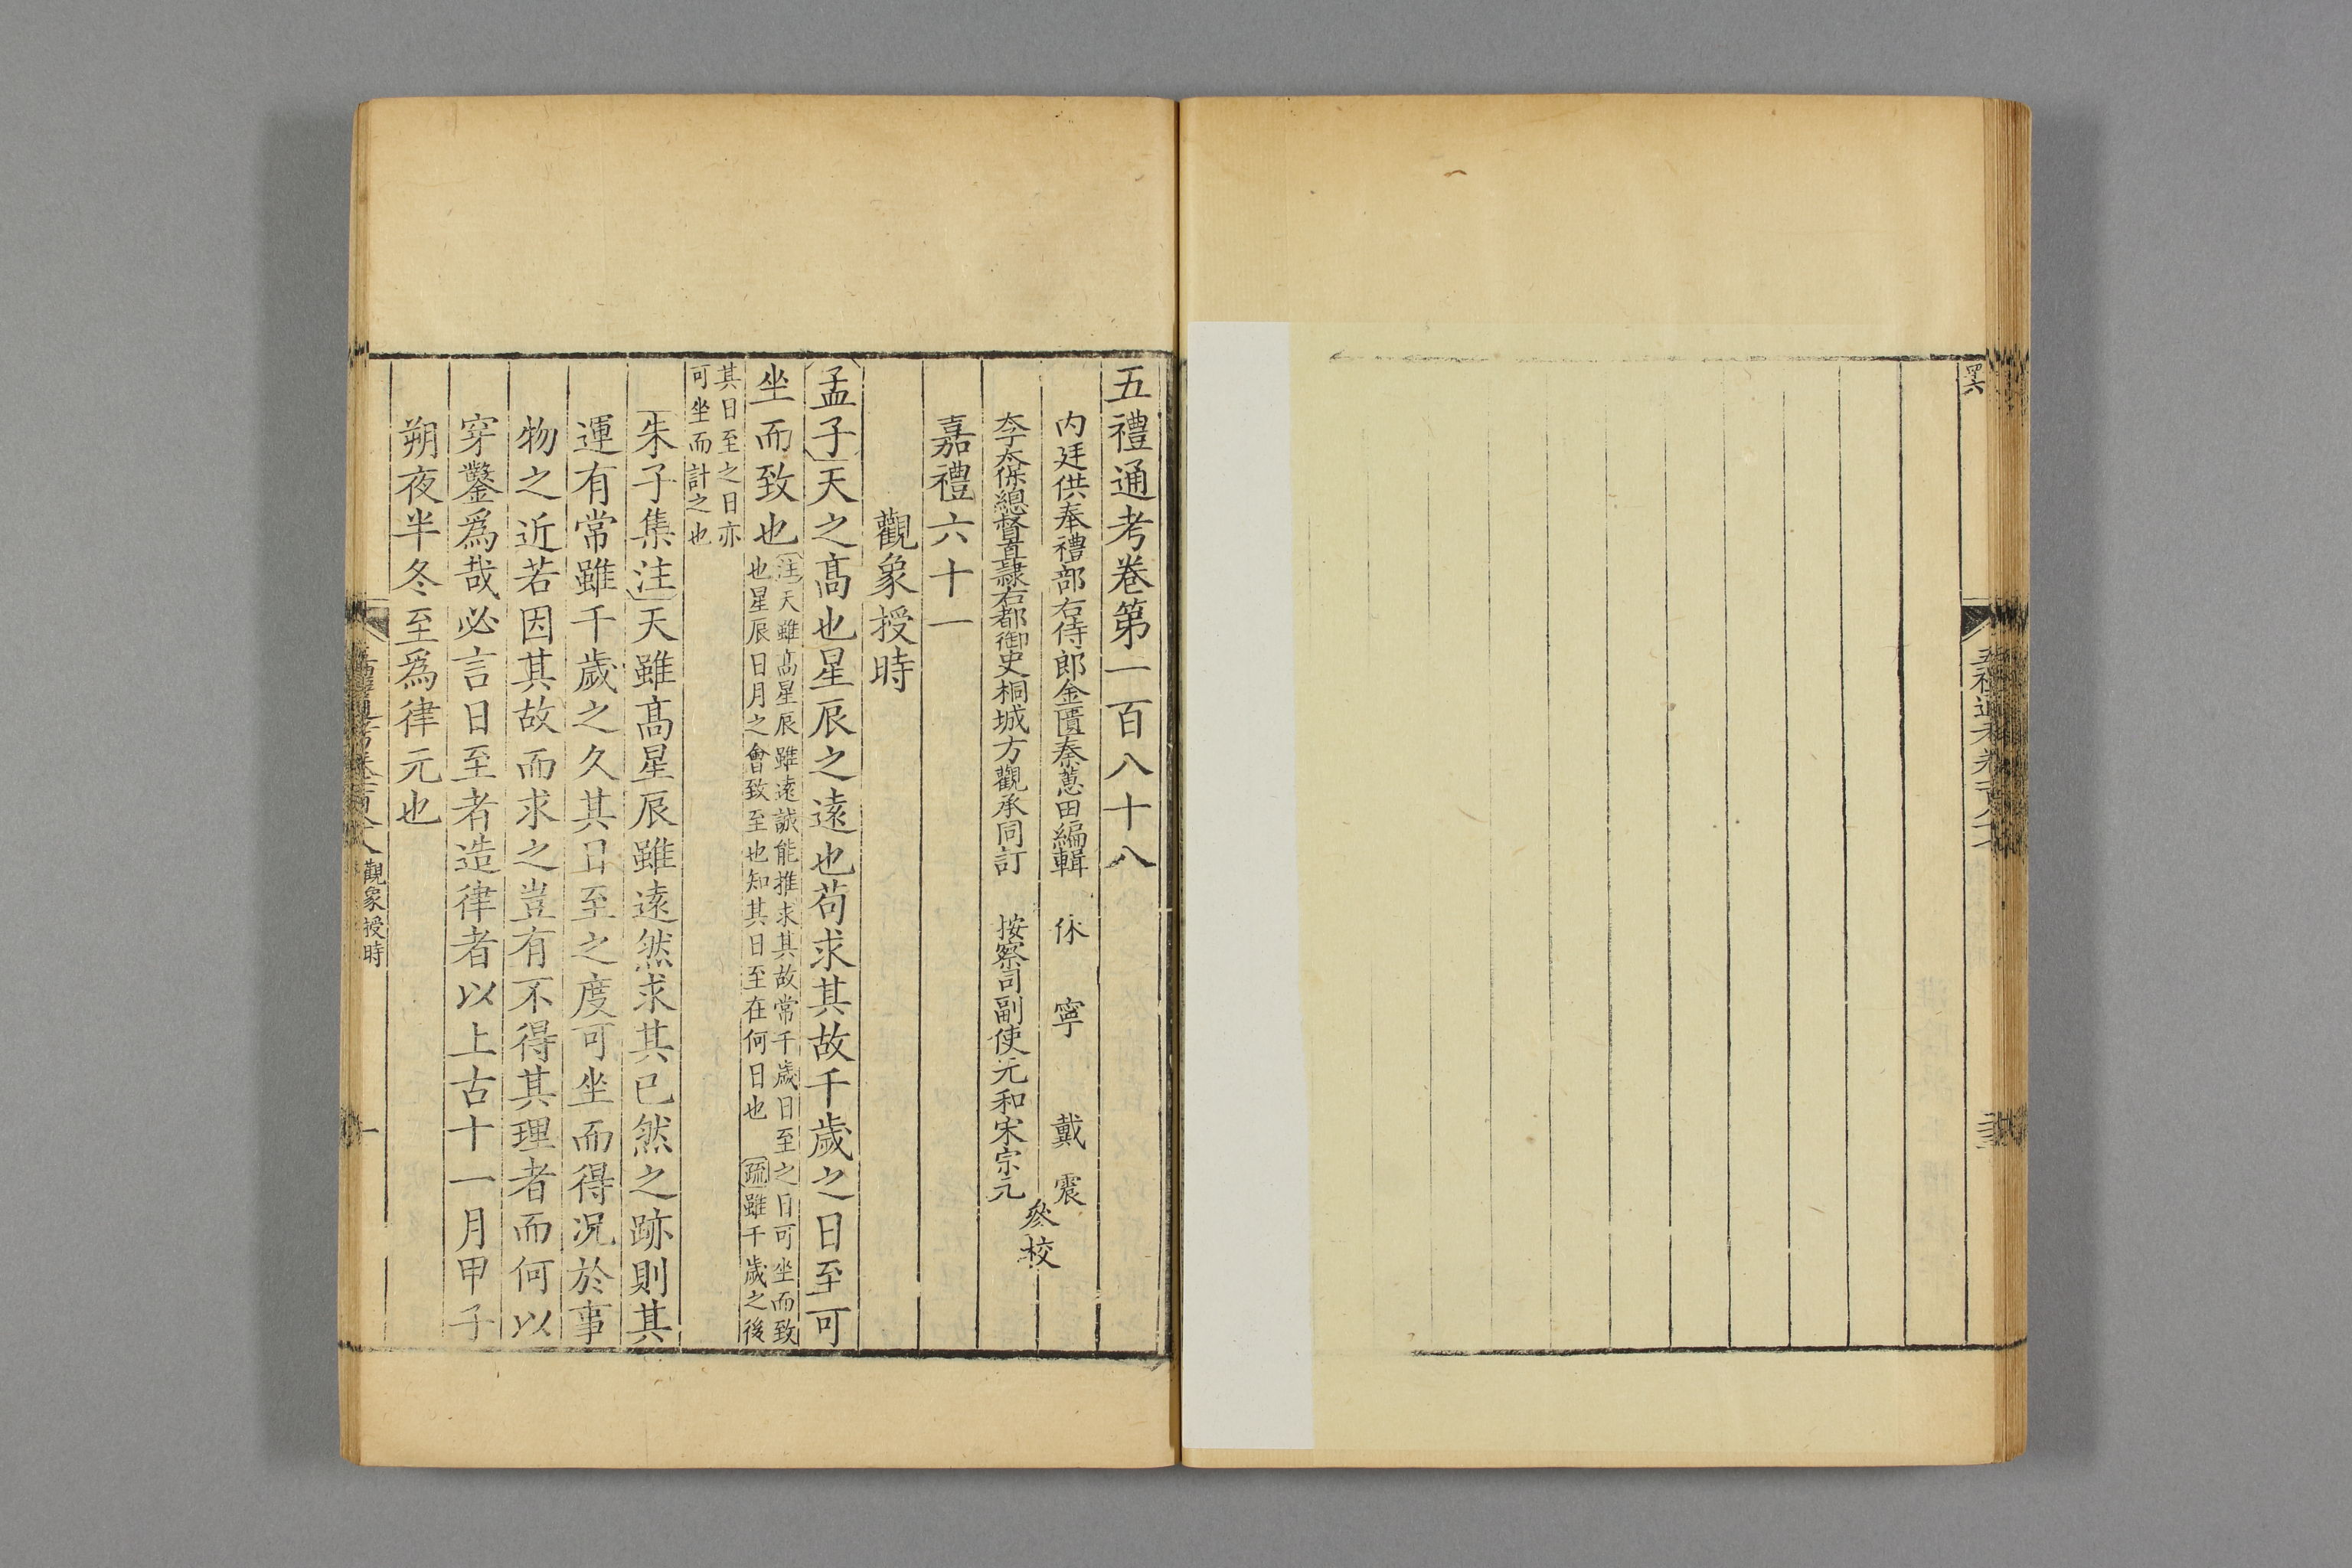 五禮通考卷第一百八十八
內廷供奉禮部右侍郎金匱秦蕙田編輯 休寧戴震
太子太保總督直隸右都御史桐城方觀承同訂 按察司副使元和宋宗元
參校
嘉禮六十一
觀象授時
孟子天之髙也星辰之遠也苟求其故千歲之日至可
坐而致也
注天雖髙星辰雖遠誠能推求其故常千歲日至之日可坐而致
也星辰日月之會致至也知其日至在何日也 疏雖千歲之後
其日至之日亦
可坐而計之也
朱子集注天雖髙星辰雖遠然求其已然之跡則其
運有常雖千歲之久其日至之度可坐而得况於事
物之近若因其故而求之豈有不得其理者而何以
穿鑿爲哉必言日至者造律者以上古十一月甲子
朔夜半冬至爲律元也
觀象授時
一